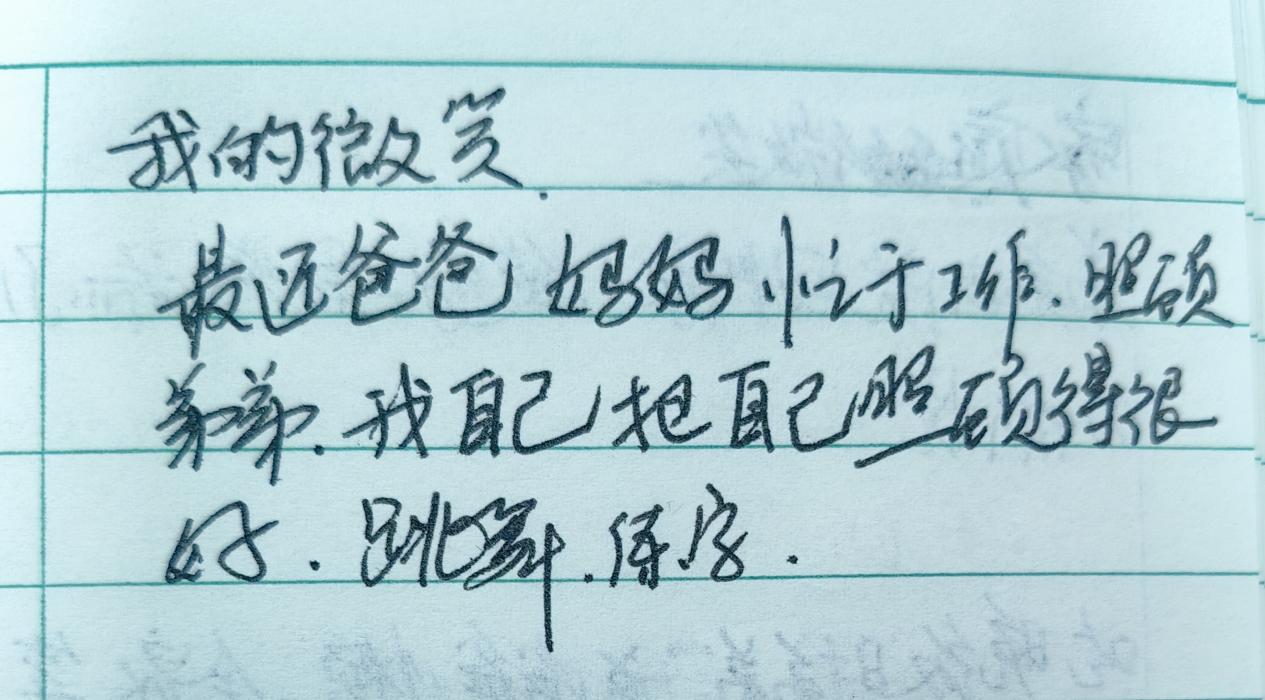 我的微笑.
最近爸爸妈妈忙于工作.照顾
弟弟.我自己把自己照顾得很
好.跳舞.练字.